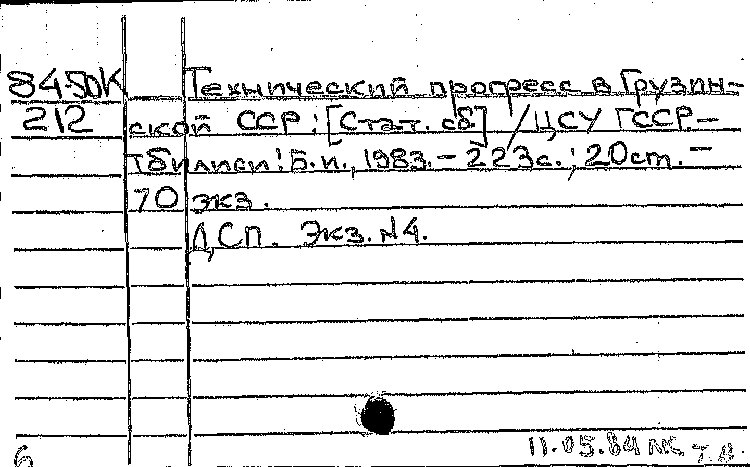 84-50К Технический прогресс в Грузин-
212 ской ССР: [Стат. сб] / ЦСУ ГССР.-
Тбилиси: Б.и., 1983. - 223 с.; 20 ст. -
70 экз.
ДСП. Экз. №4.
11.05.84
6